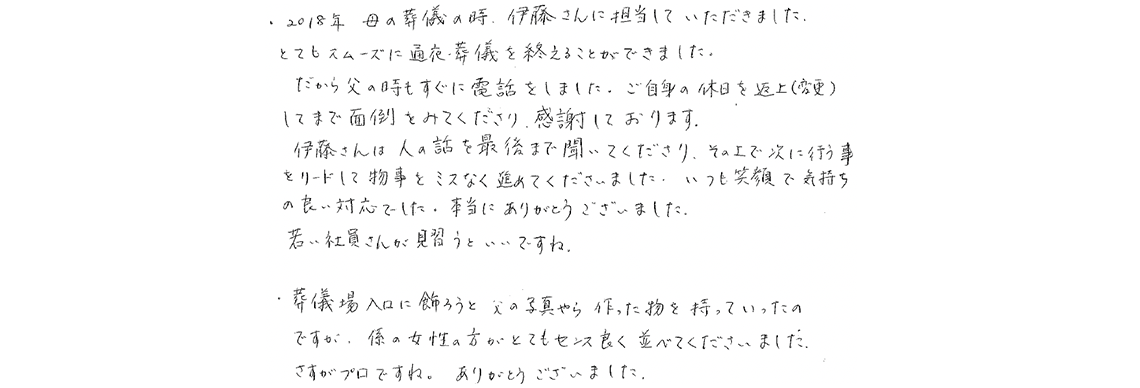 ・2018年 母の葬儀の時、伊藤さんに担当していただきました。
とてもスムーズに通夜・葬儀を終えることができました。
だから父の時もすぐに電話をしました。ご自身の休日を返上(変更)
してまで面倒をみてくださり、感謝しております。
伊藤さんは人の話を最後まで聞いてくださり、その上で次に行う事
をリードして物事をミスなく進めてくださいました。いつも笑顔で気持ち
の良い対応でした。本当にありがとうございました。
若い社員さんが見習うといいですね。
・葬儀場入口に飾ろうと父の写真やら作った物を持っていったの
ですが、係の女性の方がとてもセンス良く並べてくださいました。
さすがプロですね。ありがとうございました。